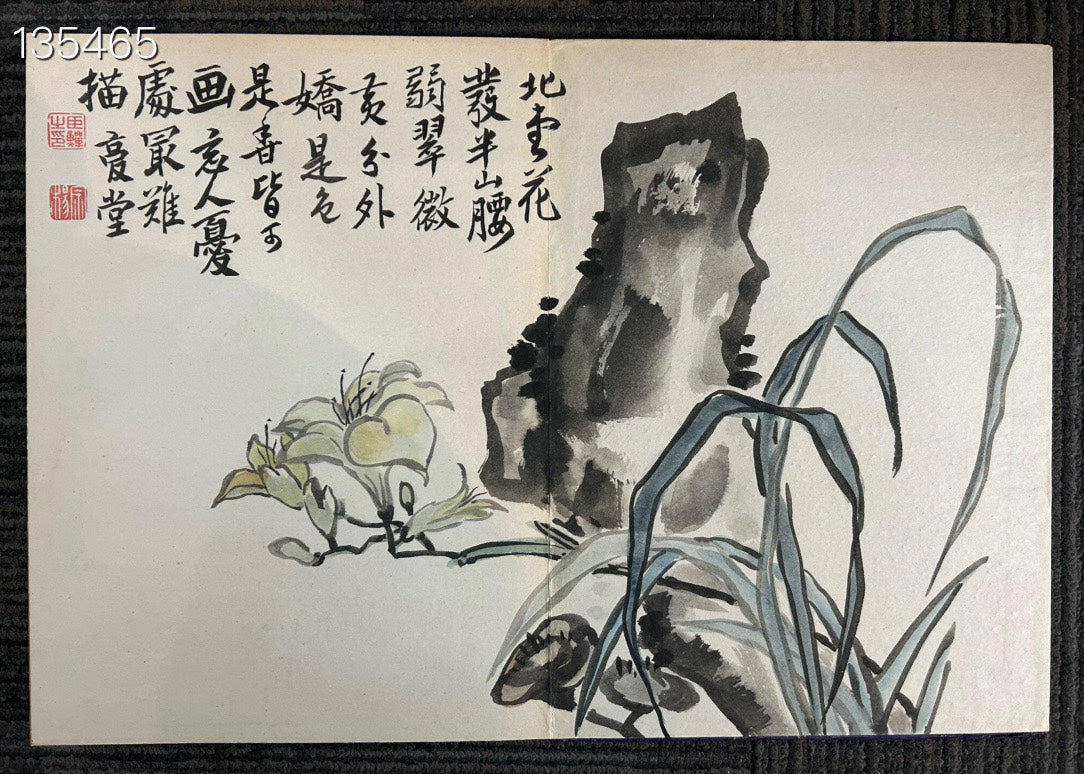 135465
北堂花
發半山腰
弱翠微
黄分外
嬌是色
是香皆可
画忘人憂
處最難
描
堂